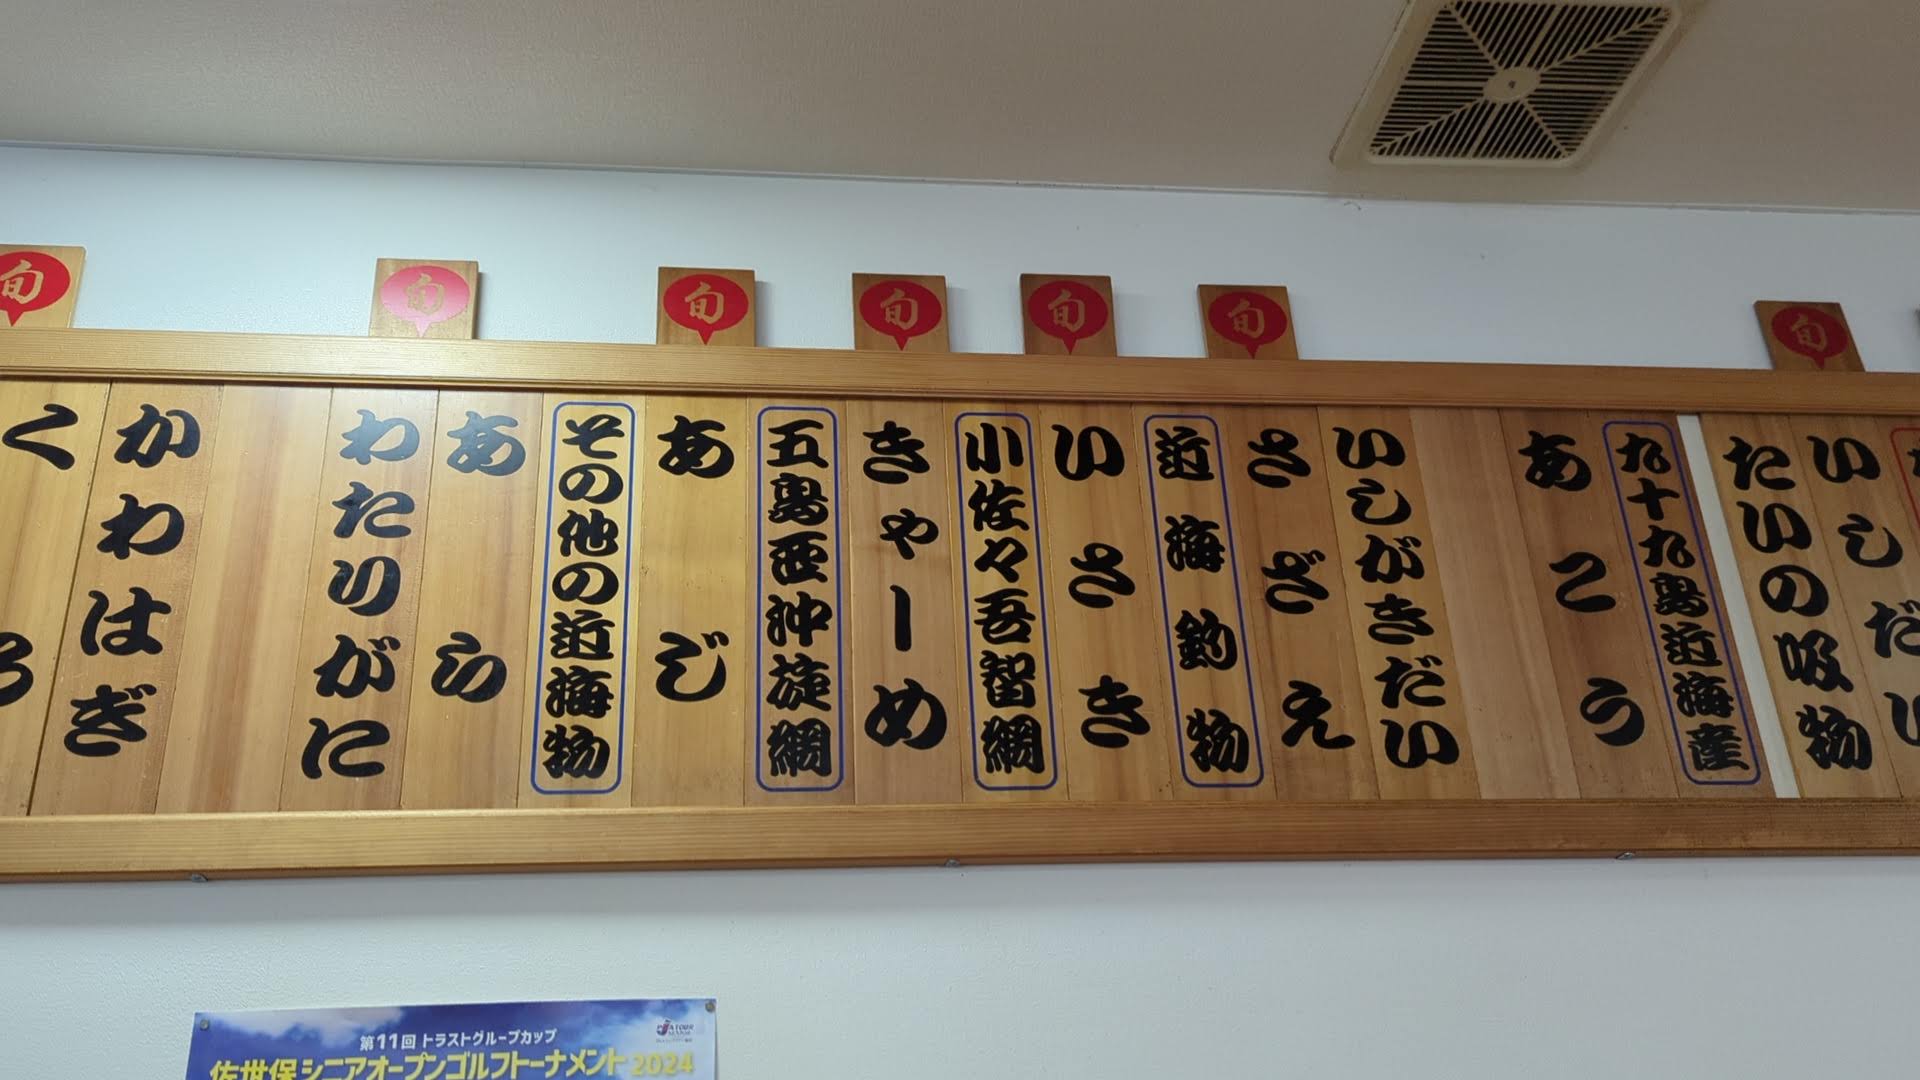 旬
旬
旬
旬
旬
旬
旬
いしだい
たいの吸物
九十九島近海産
あこう
いしがきだい
さざえ
近海釣物
いさき
小佐々吾智網
きゃーめ
五島西沖旋網
あじ
その他の近海物
あら
わたりがに
かわはぎ
第11回トラストグループカップ
佐世保シニアオープンゴルフトーナメント2024